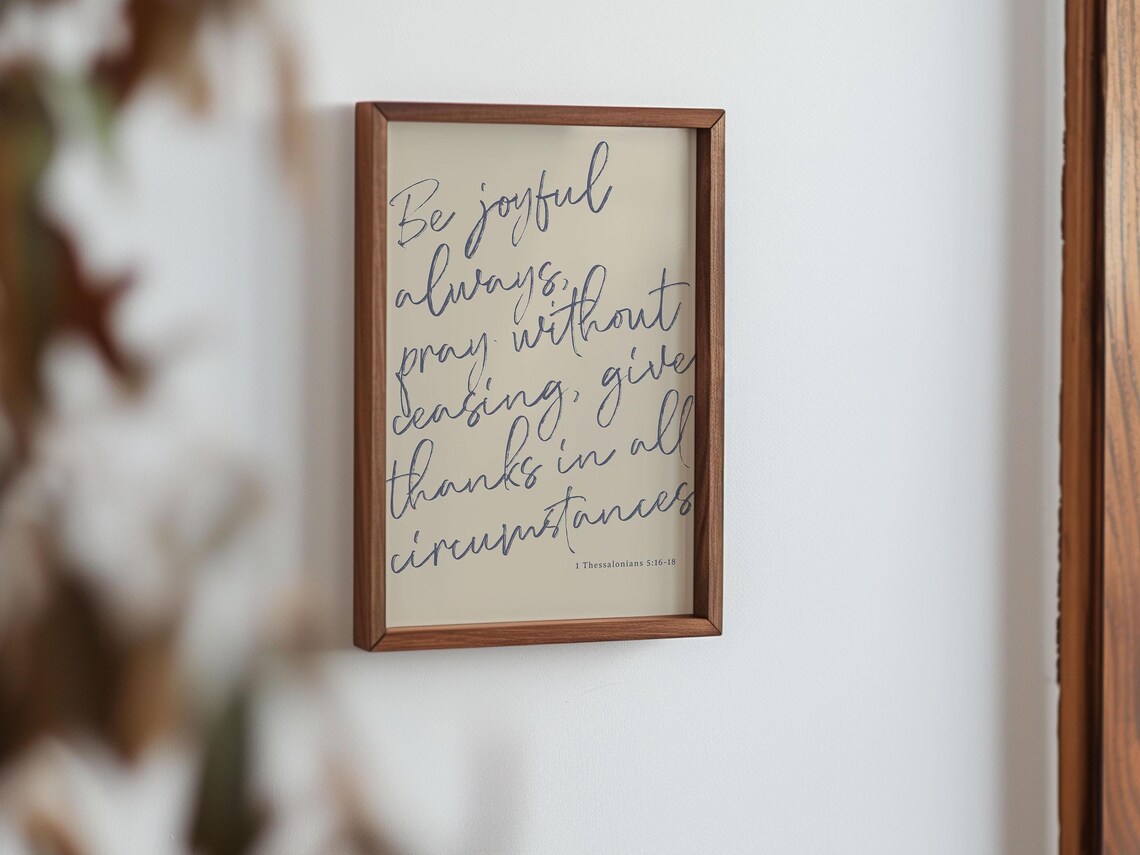 Be joyful
always,
pray without
ceasing, give
thanks in all
circumstances
1 Thessalonians 5:16-18